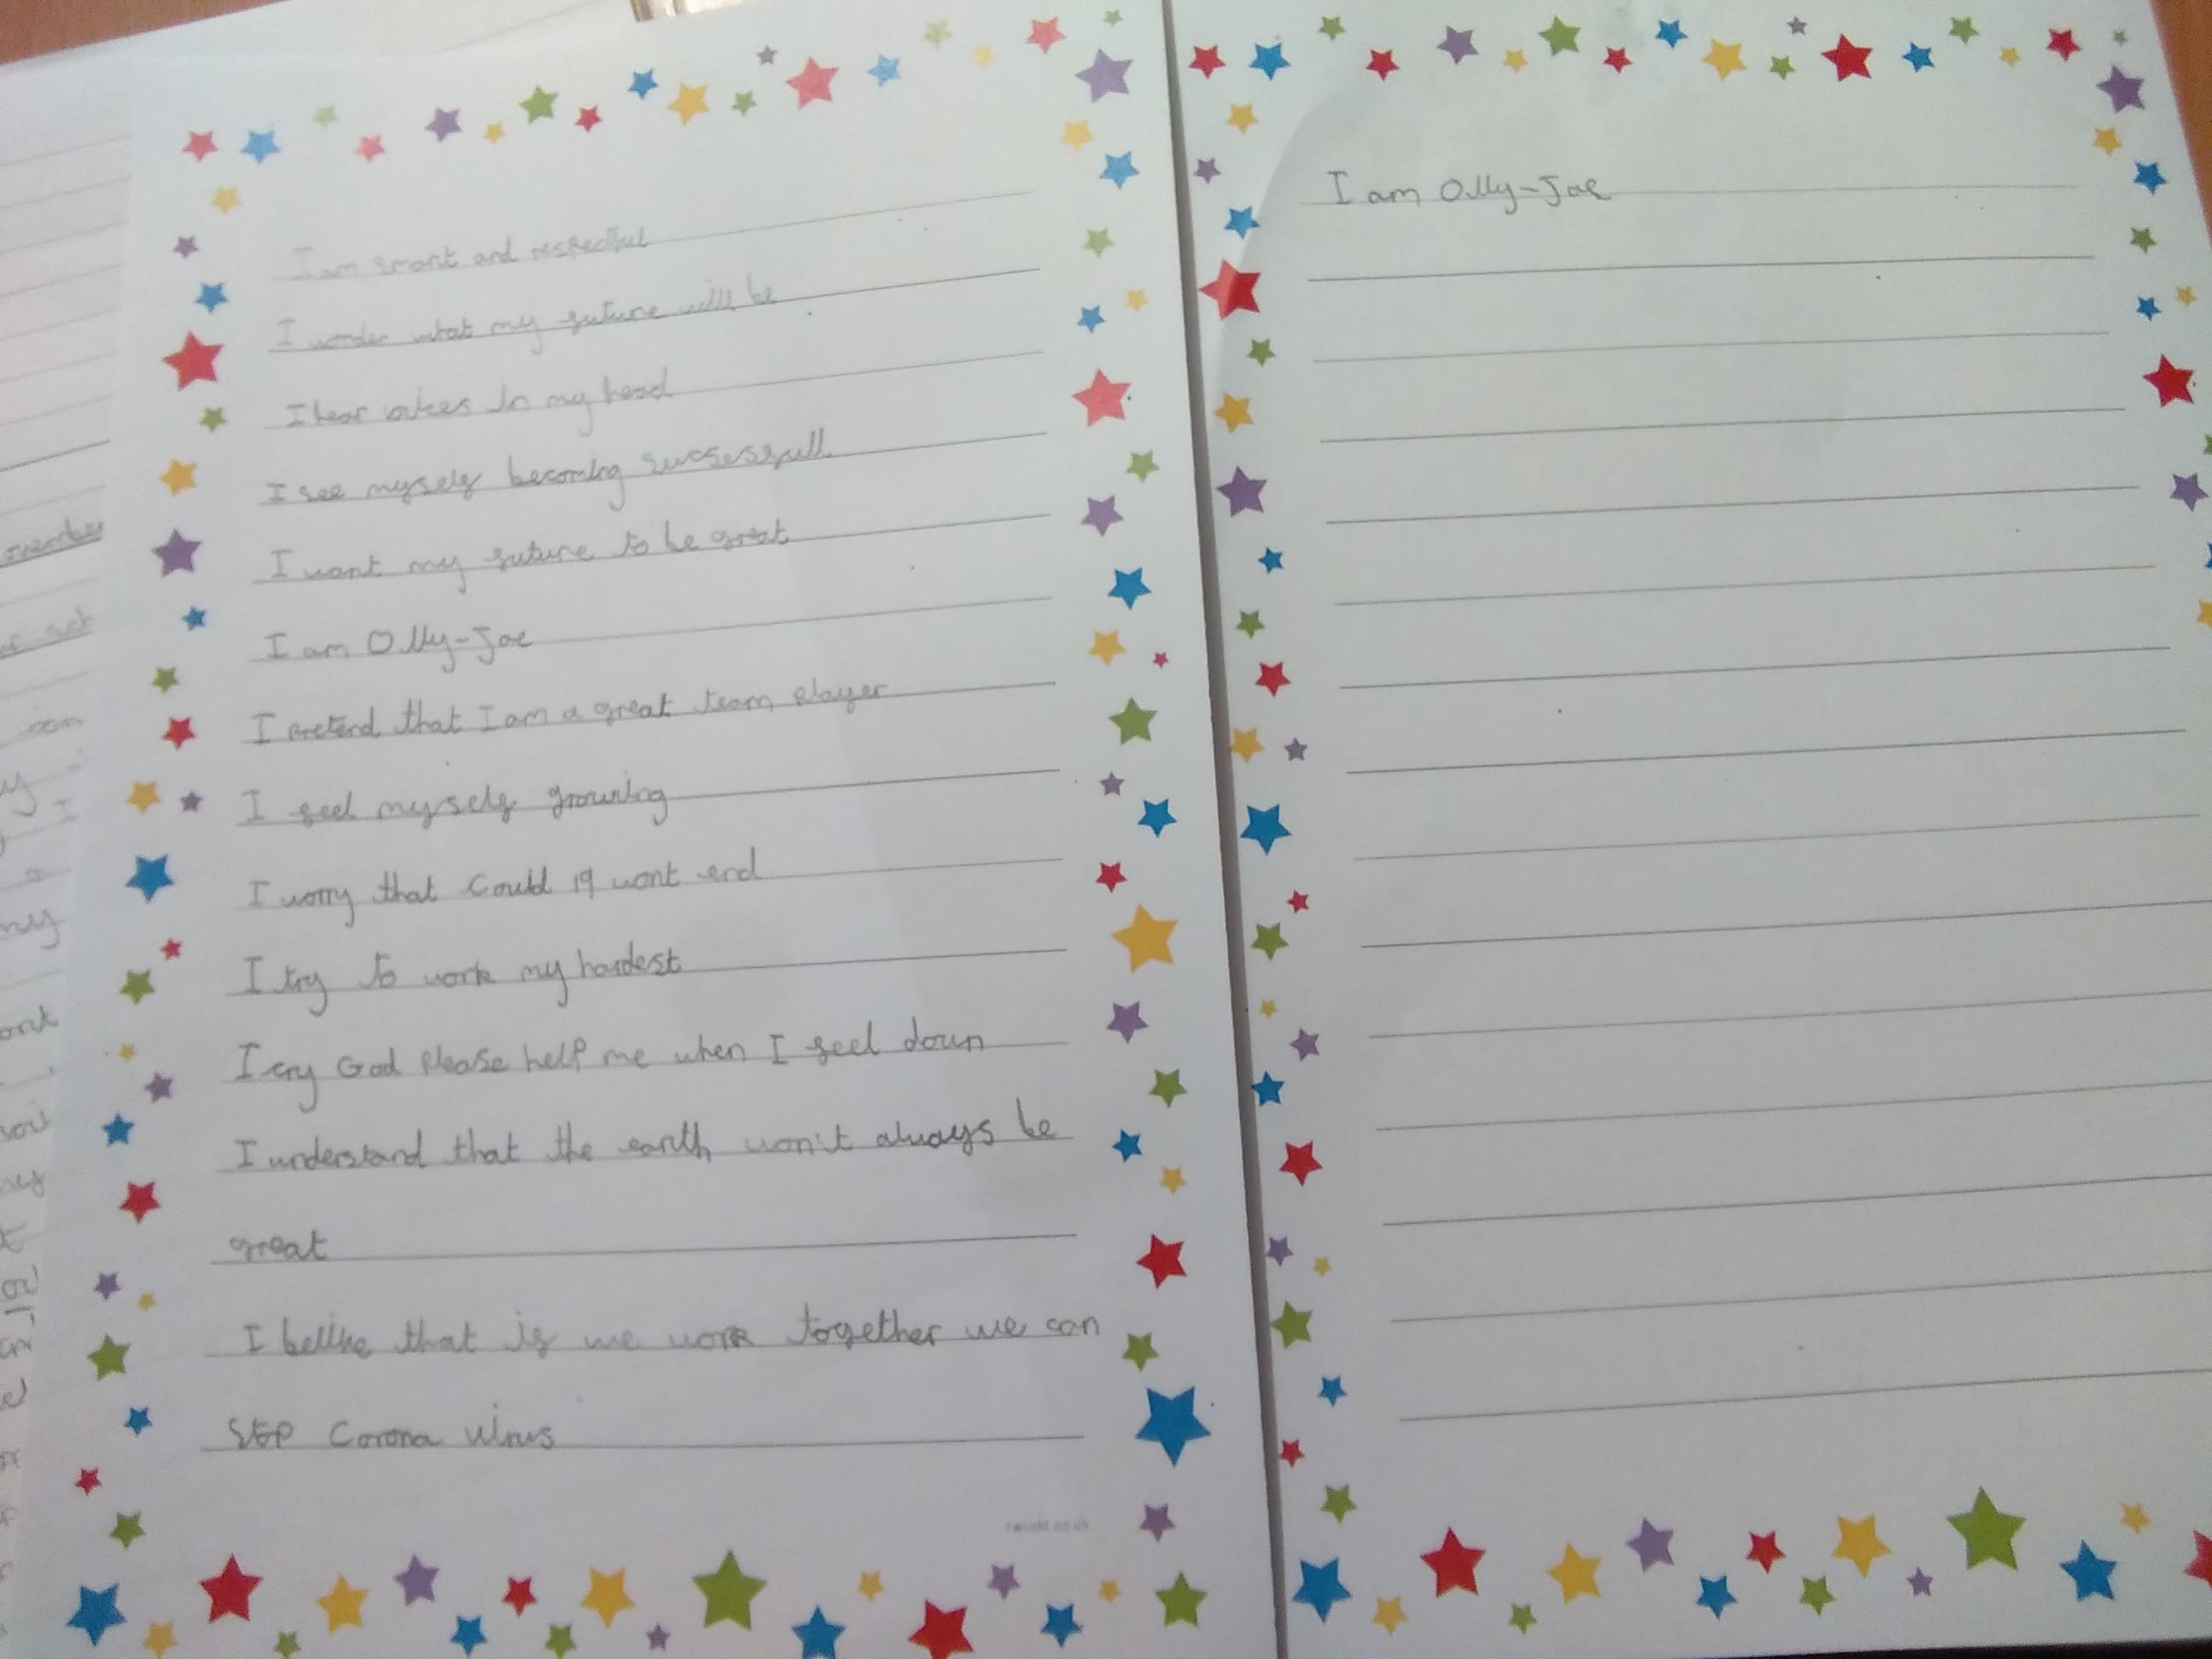 I am smart and respectful
I wonder what my future will be
I hear voices in my head
I see myself becoming sucsessfull
I want my future to be great
I am Olly-Joe
I pretend that I am a great team player
I feel myself growing
I worry that Covid 19 wont end
I try to work my hardest
I cry God please help me when I feel down
I understand that the earth won't always be
great
I belive that if we work together we can
stop Corona virus
twinkl.co.uk
I am Olly-Joe